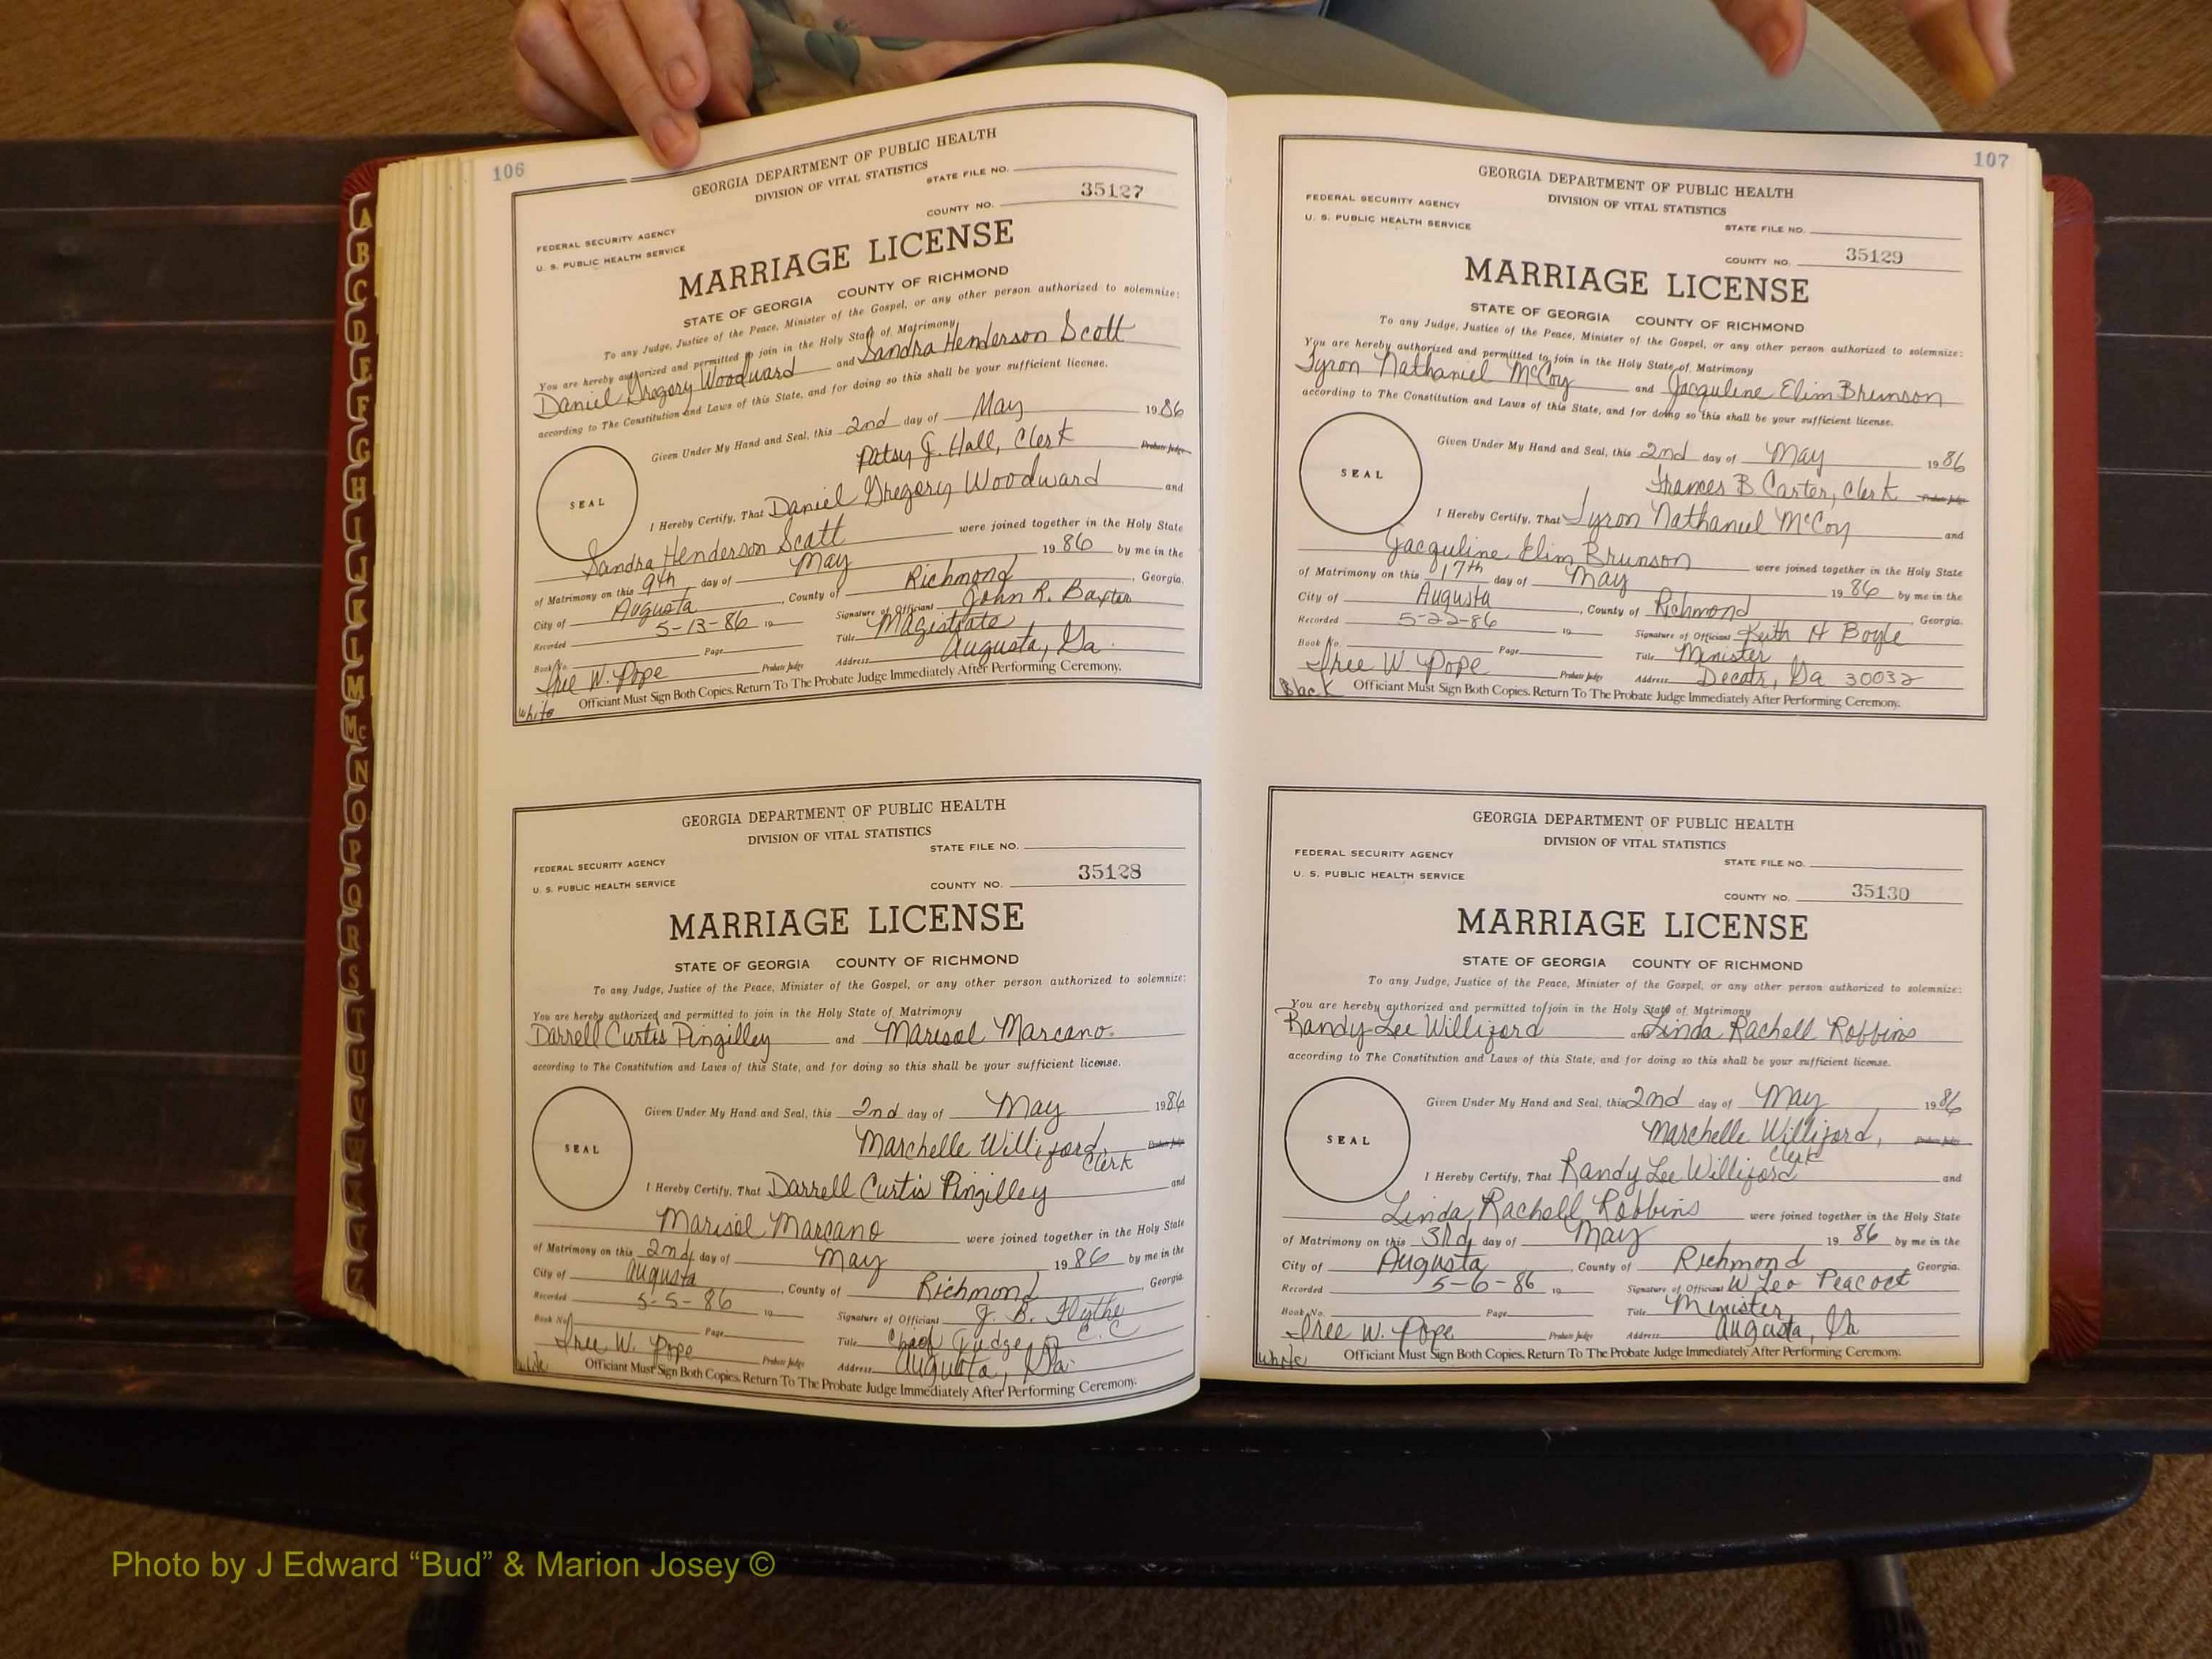 106
GEORGIA DEPARTMENT OF PUBLIC HEALTH
DIVISION OF VITAL STATISTICS
STATE FILE NO.
FEDERAL SECURITY AGENCY
U. S. PUBLIC HEALTH SERVICE
COUNTY NO. 35127
MARRIAGE LICENSE
STATE OF GEORGIA COUNTY OF RICHMOND
To any Judge, Justice of the Peace, Minister of the Gospel, or any other person authorized to solemnize:
You are hereby authorized and permitted to join in the Holy State of Matrimony
Daniel Gregory Woodward and Sandra Henderson Scott
according to The Constitution and Laws of this State, and for doing so this shall be your sufficient license.
Given Under My Hand and Seal, this 2nd day of May 1986
Patsy J. Hall, Clerk Probate Judge
SEAL
I Hereby Certify, That Daniel Gregory Woodward and
Sandra Henderson Scott were joined together in the Holy State
of Matrimony on this 9th day of May 1986 by me in the
City of Augusta, County of Richmond, Georgia.
Recorded 5-13-86 19 Signature of Officiant John R. Baxter
Book No. Page Title Magistrate
Free W. Pope Probate Judge Address Augusta, Ga.
white Officiant Must Sign Both Copies. Return To The Probate Judge Immediately After Performing Ceremony.
GEORGIA DEPARTMENT OF PUBLIC HEALTH
DIVISION OF VITAL STATISTICS
STATE FILE NO.
FEDERAL SECURITY AGENCY
U. S. PUBLIC HEALTH SERVICE
COUNTY NO. 35128
MARRIAGE LICENSE
STATE OF GEORGIA COUNTY OF RICHMOND
To any Judge, Justice of the Peace, Minister of the Gospel, or any other person authorized to solemnize:
You are hereby authorized and permitted to join in the Holy State of Matrimony
Darrell Curtis Pingilley and Marisol Marcano
according to The Constitution and Laws of this State, and for doing so this shall be your sufficient license.
Given Under My Hand and Seal, this 2nd day of May 1986
Marchelle Williford, Clerk Probate Judge
SEAL
I Hereby Certify, That Darrell Curtis Pingilley and
Marisol Marcano were joined together in the Holy State
of Matrimony on this 2nd day of May 1986 by me in the
City of Augusta, County of Richmond, Georgia
Recorded 5-5-86 19 Signature of Officiant J. B. Flythe
Book No. Page Title Chief Judge C.C
Free W. Pope Probate Judge Address Augusta, Ga.
white Officiant Must Sign Both Copies. Return To The Probate Judge Immediately After Performing Ceremony.
107
GEORGIA DEPARTMENT OF PUBLIC HEALTH
DIVISION OF VITAL STATISTICS
FEDERAL SECURITY AGENCY
U. S. PUBLIC HEALTH SERVICE
STATE FILE NO.
COUNTY NO. 35129
MARRIAGE LICENSE
STATE OF GEORGIA COUNTY OF RICHMOND
To any Judge, Justice of the Peace, Minister of the Gospel, or any other person authorized to solemnize:
You are hereby authorized and permitted to join in the Holy State of Matrimony
Tyron Nathaniel McCoy and Jacquline Elim Brunson
according to The Constitution and Laws of this State, and for doing so this shall be your sufficient license.
Given Under My Hand and Seal, this 2nd day of May 1986
Frances B. Carter, Clerk Probate Judge
SEAL
I Hereby Certify, That Tyron Nathaniel McCoy and
Jacquline Elim Brunson were joined together in the Holy State
of Matrimony on this 17th day of May 1986 by me in the
City of Augusta, County of Richmond, Georgia.
Recorded 5-22-86 19 Signature of Officiant Keith H Boyle
Book No. Page Title Minister
Free W. Pope Probate Judge Address Decatr, Ga 30032
Black Officiant Must Sign Both Copies. Return To The Probate Judge Immediately After Performing Ceremony.
GEORGIA DEPARTMENT OF PUBLIC HEALTH
DIVISION OF VITAL STATISTICS
FEDERAL SECURITY AGENCY
STATE FILE NO.
U. S. PUBLIC HEALTH SERVICE
COUNTY NO. 35130
MARRIAGE LICENSE
STATE OF GEORGIA COUNTY OF RICHMOND
To any Judge, Justice of the Peace, Minister of the Gospel, or any other person authorized to solemnize:
You are hereby authorized and permitted to join in the Holy State of Matrimony
Randy Lee Williford and Linda Rachell Robbins
according to The Constitution and Laws of this State, and for doing so this shall be your sufficient license.
Given Under My Hand and Seal, this 2nd day of May 1986
Marchelle Williford, Clerk Probate Judge
SEAL
I Hereby Certify, That Randy Lee Williford and
Linda Rachell Robbins were joined together in the Holy State
of Matrimony on this 3rd day of May 1986 by me in the
City of Augusta, County of Richmond Georgia.
Recorded 5-6-86 19 Signature of Officiant W Leo Peacock
Book No. Page Title Minister
Free W. Pope Probate Judge Address Augusta, Ga
white Officiant Must Sign Both Copies. Return To The Probate Judge Immediately After Performing Ceremony.
A
B
C
D
E
F
G
H
I
J
K
L
M
Mc
N
O
P
Q
R
S
T
U
V
W
X
Y
Z
Photo by J Edward “Bud” & Marion Josey ©